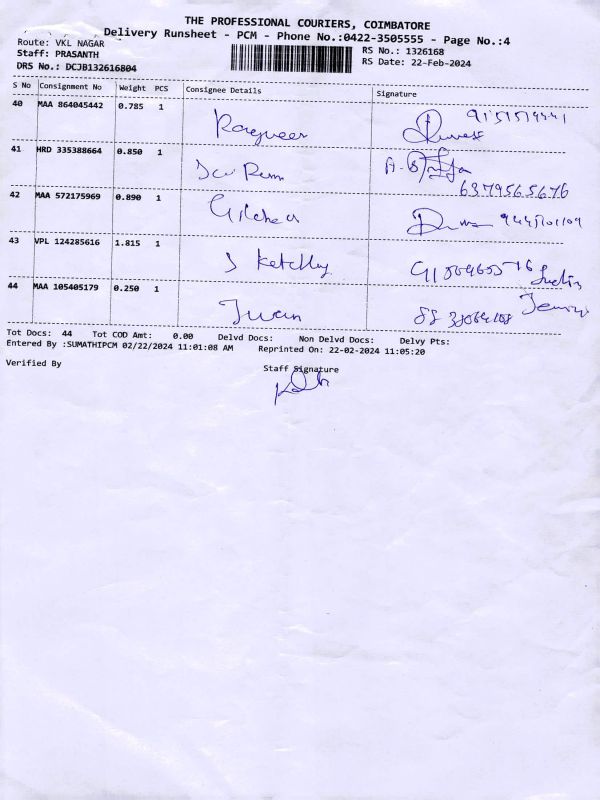 THE PROFESSIONAL COURIERS, COIMBATORE
Delivery Runsheet - PCM - Phone No.:0422-3505555 - Page No.:4
Route: VKL NAGAR
RS No.: 1326168
Staff: PRASANTH
RS Date: 22-Feb-2024
DRS No.: DCJB132616804
S No Consignment No Weight PCS Consignee Details Signature
40 MAA 864045442 0.785 1
41 HRD 335388664 0.850 1
6379565676
42 MAA 572175969 0.890 1
43 VPL 124285616 1.815 1
44 MAA 105405179 0.250 1
Tot Docs: 44 Tot COD Amt: 0.00 Delvd Docs: Non Delvd Docs: Delvy Pts:
Entered By :SUMATHIPCM 02/22/2024 11:01:08 AM Reprinted On: 22-02-2024 11:05:20
Verified By
Staff Signature